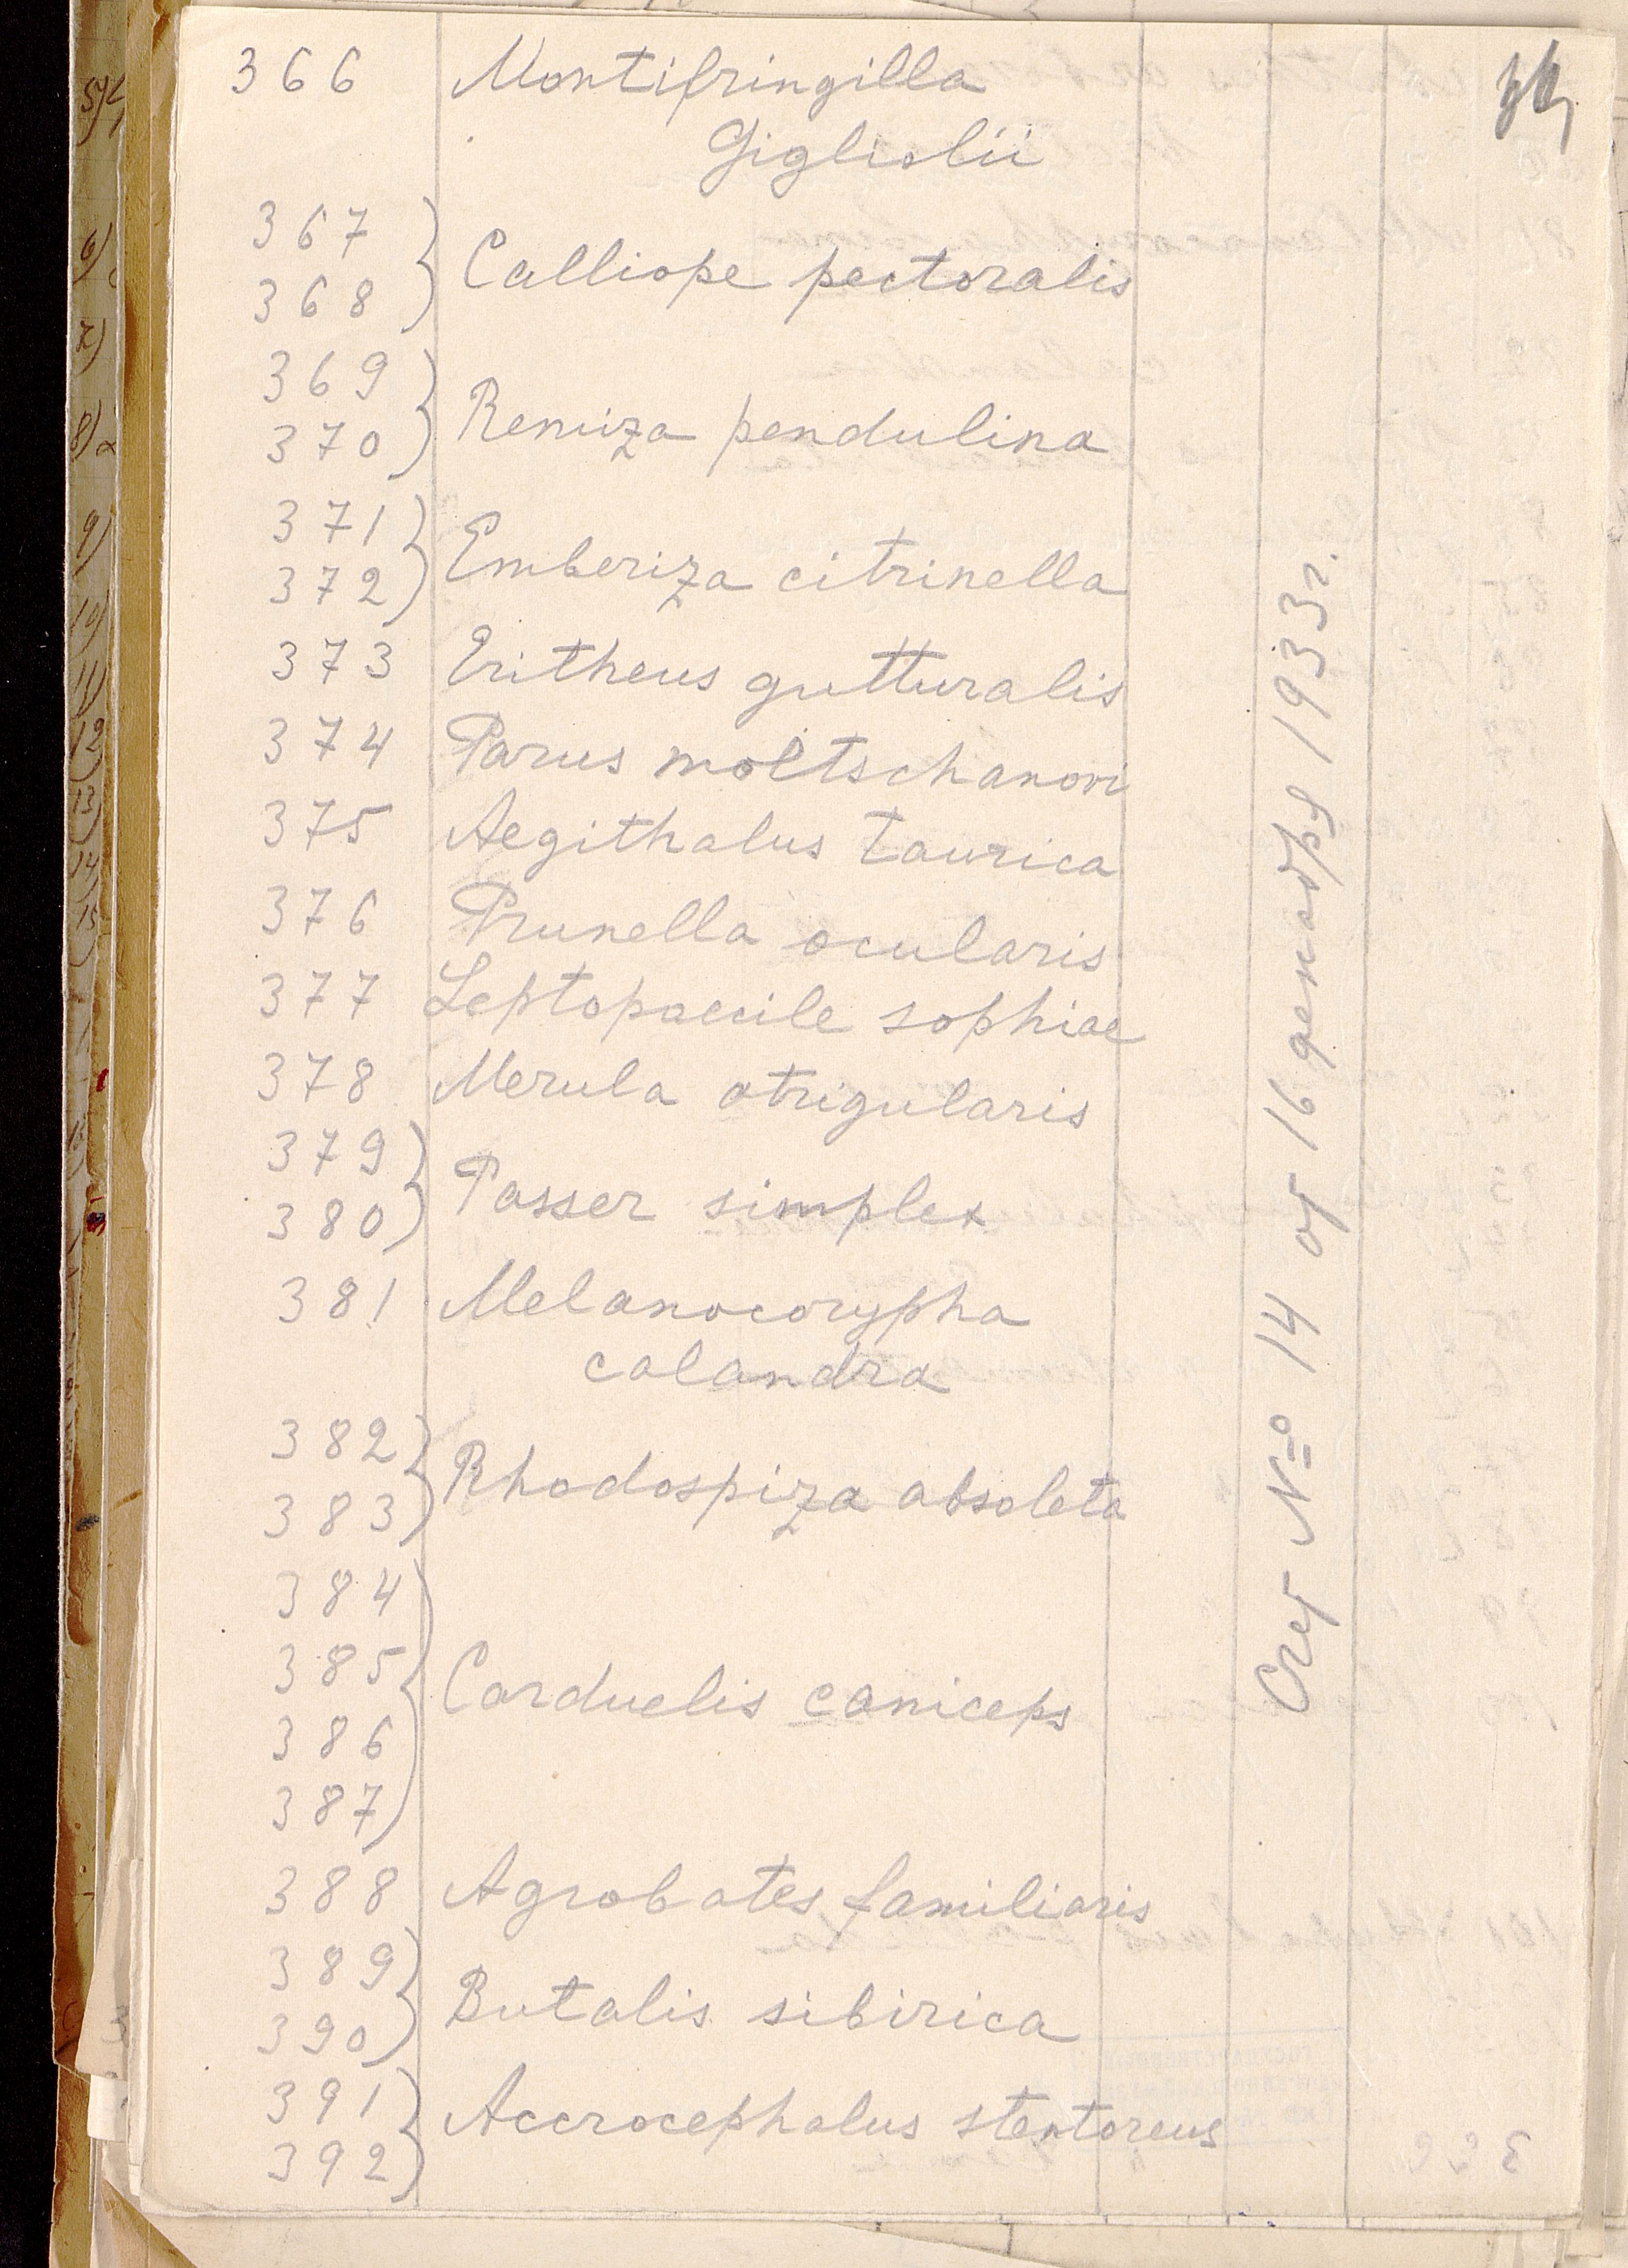 366 Montifringilla
Gigliolii
367
368
Calliope pectoralis
369
370
Remiza pendulina
371
372
Emberiza citrinella
373 Eritheus gutturalis
374 Parus moltschanovi
375 Aegithalus taurica
376 Prunella ocularis
377 Leptopaecile sophiae
378 Merula atrigularis
379
380
Passer simplex
381 Melanocorypha
calandra
382
383
Rhodospiza absoleta
384
385
386
387
Carduelis caniceps
388 Agrobates familiaris
389
390
Butalis sibirica
391
392
Accrocephalus stentoreus
Счет № 14 от 16 декабря 1933 г.